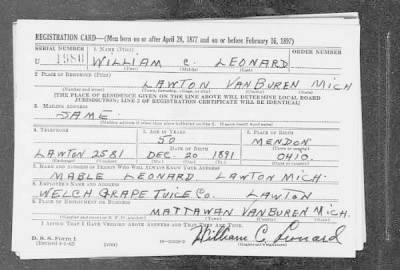 REGISTRATION CARD—(Men born on or after April 28, 1877 and on or before February 16, 1897)
SERIAL NUMBER 1. NAME (Print) ORDER NUMBER
U 1980 WILLIAM C. LEONARD
(First) (Middle) (Last)
2. PLACE OF RESIDENCE (Print)
LAWTON VANBUREN MICH
(Number and street) (Town, township, village, or city) (County) (State)
[THE PLACE OF RESIDENCE GIVEN ON THE LINE ABOVE WILL DETERMINE LOCAL BOARD
JURISDICTION; LINE 2 OF REGISTRATION CERTIFICATE WILL BE IDENTICAL]
3. MAILING ADDRESS
SAME.
[Mailing address if other than place indicated on line 2. If same insert word same]
4. TELEPHONE 5. AGE IN YEARS 6. PLACE OF BIRTH
50 MENDON
DATE OF BIRTH (Town or county)
LAWTON 2581 DEC. 20 1891 OHIO.
(Exchange) (Number) (Mo.) (Day) (Yr.) (State or country)
7. NAME AND ADDRESS OF PERSON WHO WILL ALWAYS KNOW YOUR ADDRESS
MABLE LEONARD LAWTON MICH.
8. EMPLOYER'S NAME AND ADDRESS
WELCH GRAPE JUICE CO. LAWTON
9. PLACE OF EMPLOYMENT OR BUSINESS
MATTAWAN VANBUREN MICH.
(Number and street or R. F. D. number) (Town) (County) (State)
I AFFIRM THAT I HAVE VERIFIED ABOVE ANSWERS AND THAT THEY ARE TRUE.
D. S. S. Form 1 William C. Leonard
(Revised 4-1-42) (over) (Registrant's signature)